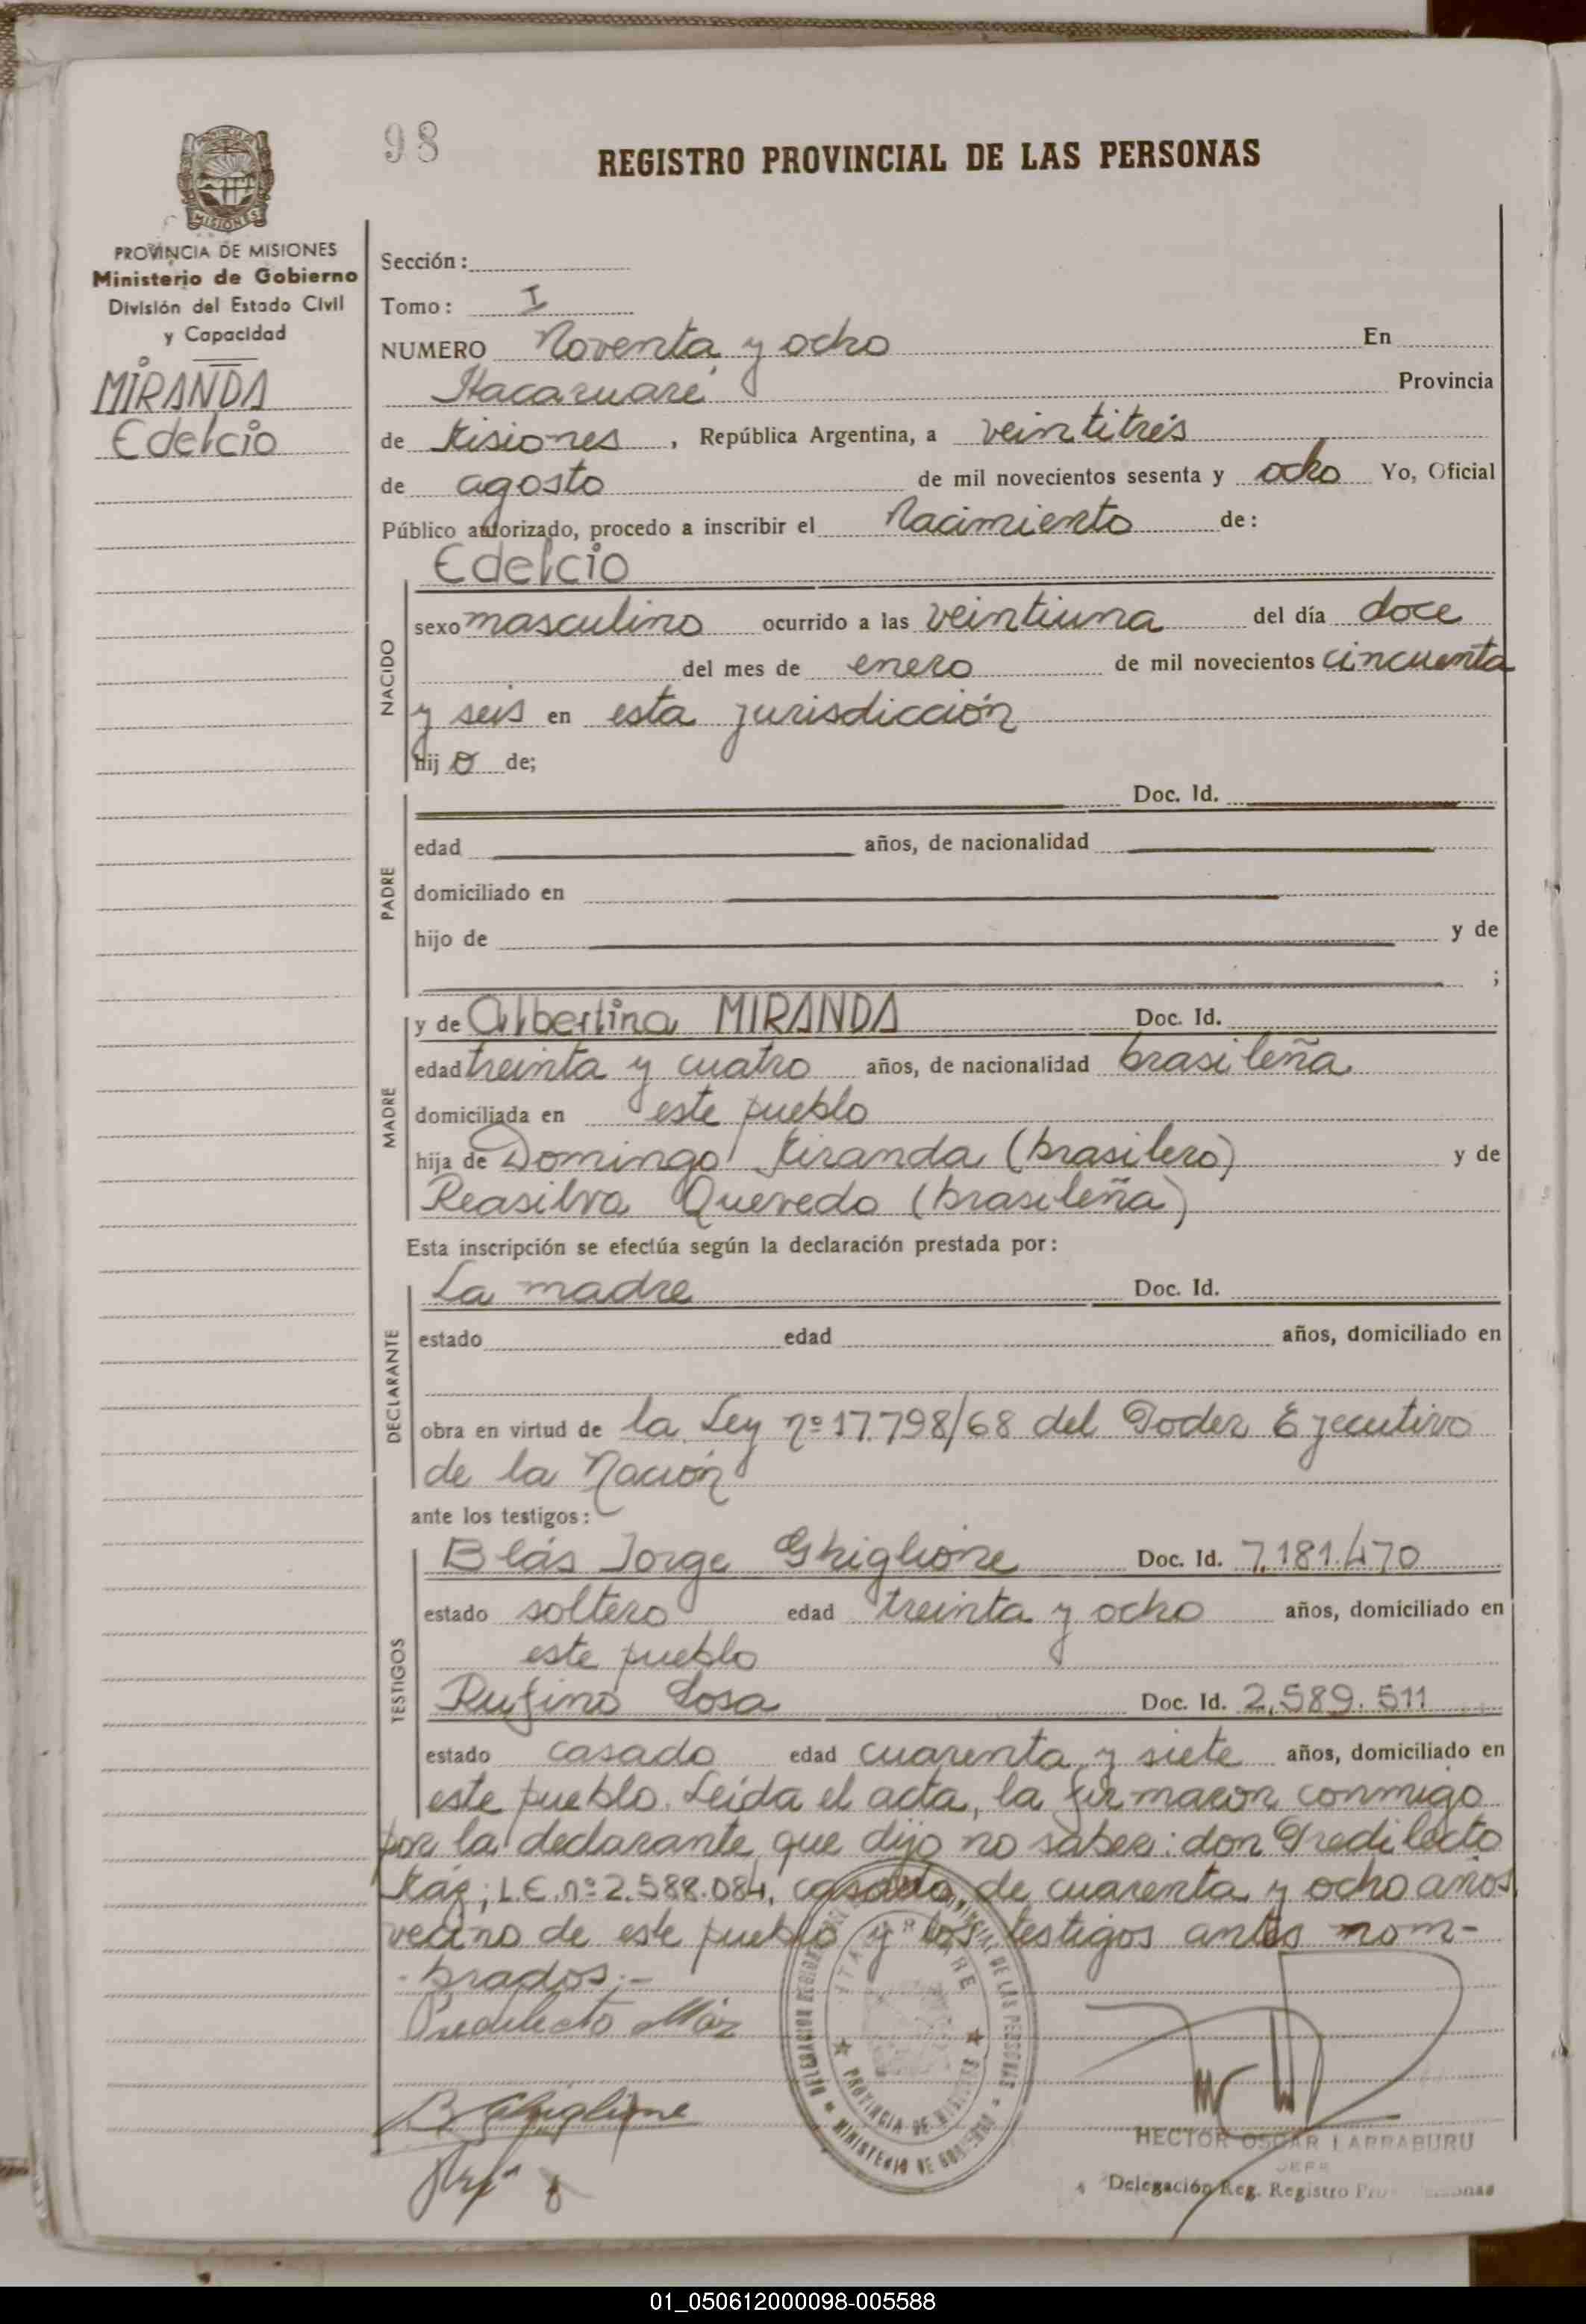 98
REGISTRO PROVINCIAL DE LAS PERSONAS
MISIONES
PROVINCIA DE MISIONES
Ministerio de Gobierno
División del Estado Civil
y Capacidad
MIRANDA
Edelcio
Sección:
Tomo: I
NUMERO Noventa y ocho En
Itacaruaré Provincia
de Misiones, República Argentina, a veintitrés
de agosto de mil novecientos sesenta y ocho Yo, Oficial
Público autorizado, procedo a inscribir el Nacimiento de:
Edelcio
NACIDO
sexo masculino ocurrido a las veintiuna del día doce
del mes de enero de mil novecientos cincuenta
y seis en esta jurisdicción
hijo de;
PADRE
Doc. Id.
edad años, de nacionalidad
domiciliado en
hijo de y de
;
MADRE
y de Albertina MIRANDA Doc. Id.
edad treinta y cuatro años, de nacionalidad brasileña
domiciliada en este pueblo
hija de Domingo Miranda (brasilero) y de
Reasilva Quevedo (brasileña)
Esta inscripción se efectúa según la declaración prestada por:
DECLARANTE
La madre Doc. Id.
estado edad años, domiciliado en
obra en virtud de la Ley nº 17.798/68 del Poder Ejecutivo
de la Nación
ante los testigos:
TESTIGOS
Blás Jorge Ghiglione Doc. Id. 7.181.470
estado soltero edad treinta y ocho años, domiciliado en
este pueblo
Rufino Sosa Doc. Id. 2.589.511
estado casado edad cuarenta y siete años, domiciliado en
este pueblo. Leída el acta, la firmaron conmigo
por la declarante que dijo no saber: don Predilecto
Máz; L.E. nº 2.588.084, casado, de cuarenta y ocho años
vecino de este pueblo y los testigos antes nom-
brados.-
Predilecto Máz
B Ghiglione
PROVINCIA DE MISIONES
MINISTERIO DE GOBIERNO
HECTOR OSCAR LARRABURU
JEFE
Delegación Reg. Registro
01_050612000098-005588